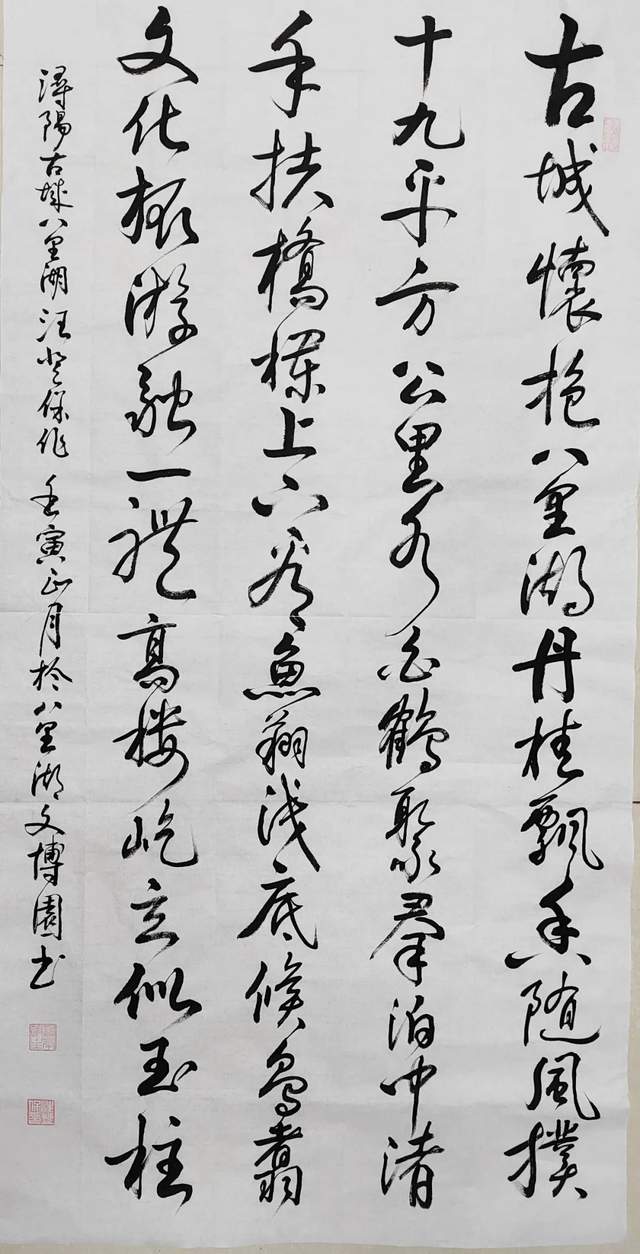 古城懷抱八里湖丹桂飄香随風撲
十九平方公里水白鶴聚羣泊中渚
手扶橋欄上下看魚翔浅底候鳥翥
文化旅游融一體高樓屹立似玉柱
潯陽古城八里湖汪保作 壬寅正月於八里湖文博園书